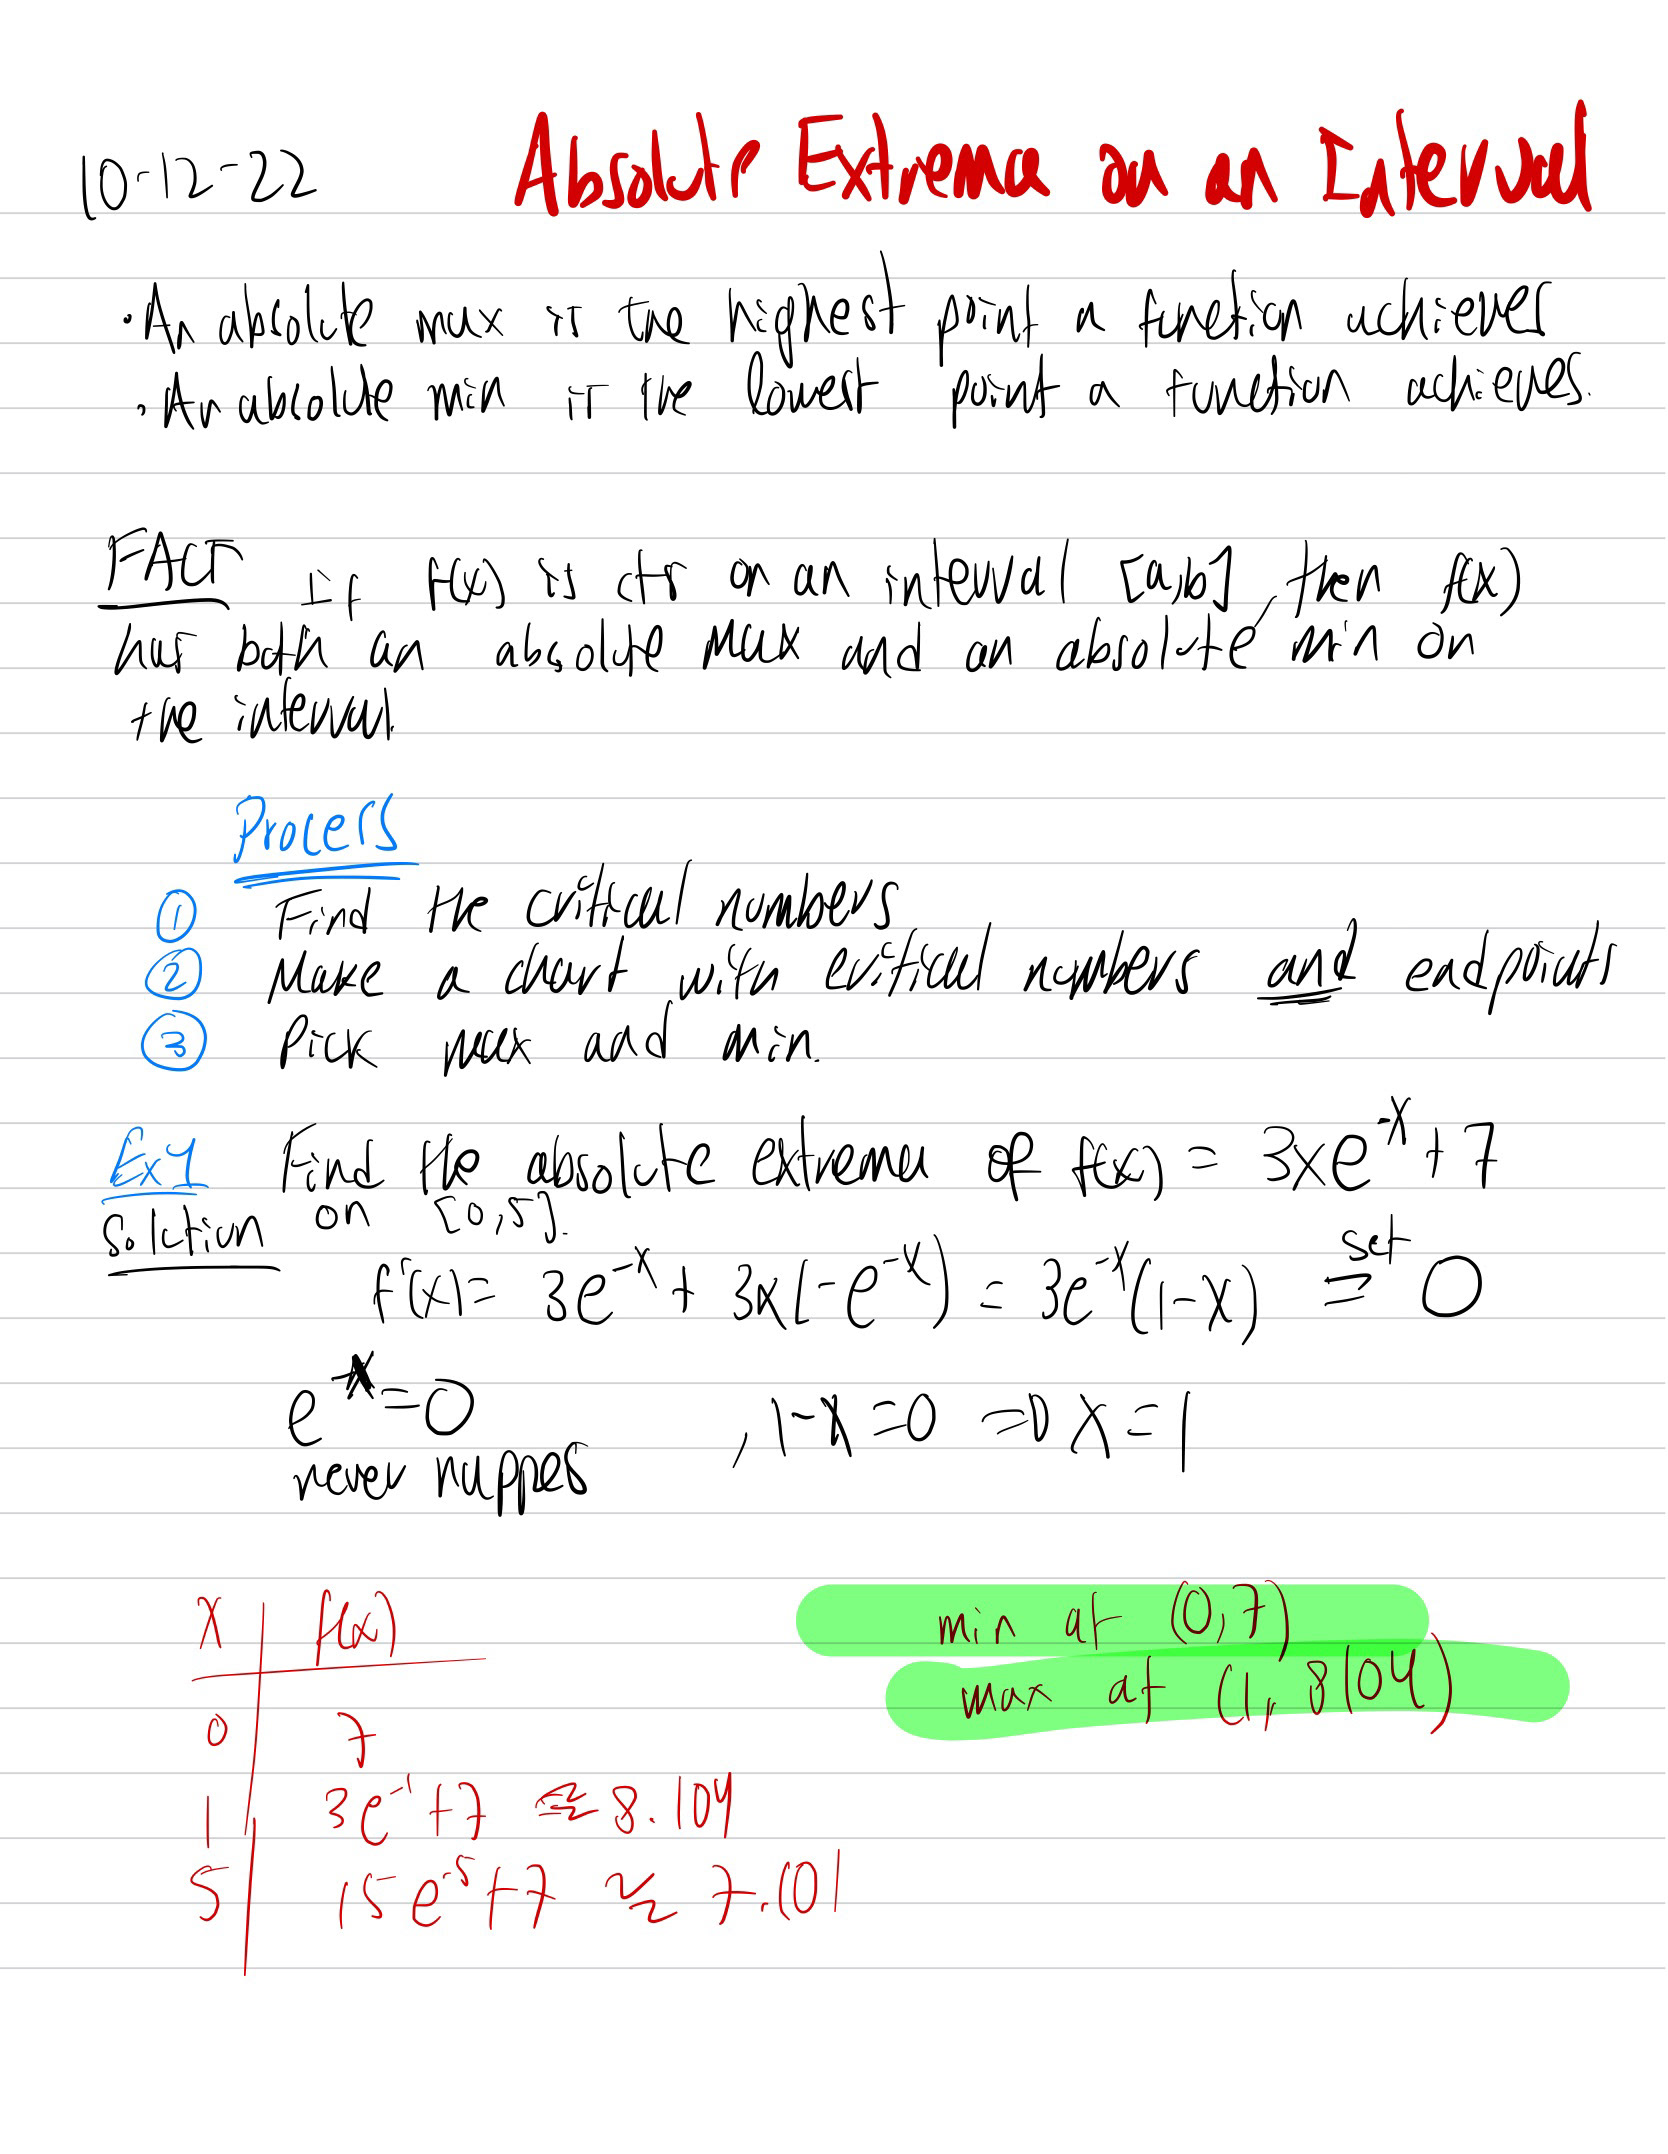 10-12-22 Absolute Extrema on an Interval
• An absolute max is the highest point a function achieves
• An absolute min is the lowest point a function achieves.
FACT If f(x) is cts on an interval [a,b], then f(x)
has both an absolute max and an absolute min on
the interval.
Process
① Find the critical numbers
② Make a chart with critical numbers and endpoints
③ Pick max and min.
Ex1 Find the absolute extrema of f(x) = 3xe^{-x} + 7
on [0,5].
Solution
f'(x) = 3e^{-x} + 3x(-e^{-x}) = 3e^{-x}(1-x) set = 0
e^{-x} = 0 , 1-x = 0 ⇒ x = 1
never happes
x f(x) min at (0,7)
max at (1, 8104)
0 7
1 3e^{-1} + 7 ≈ 8.104
5 15e^{-5} + 7 ≈ 7.101